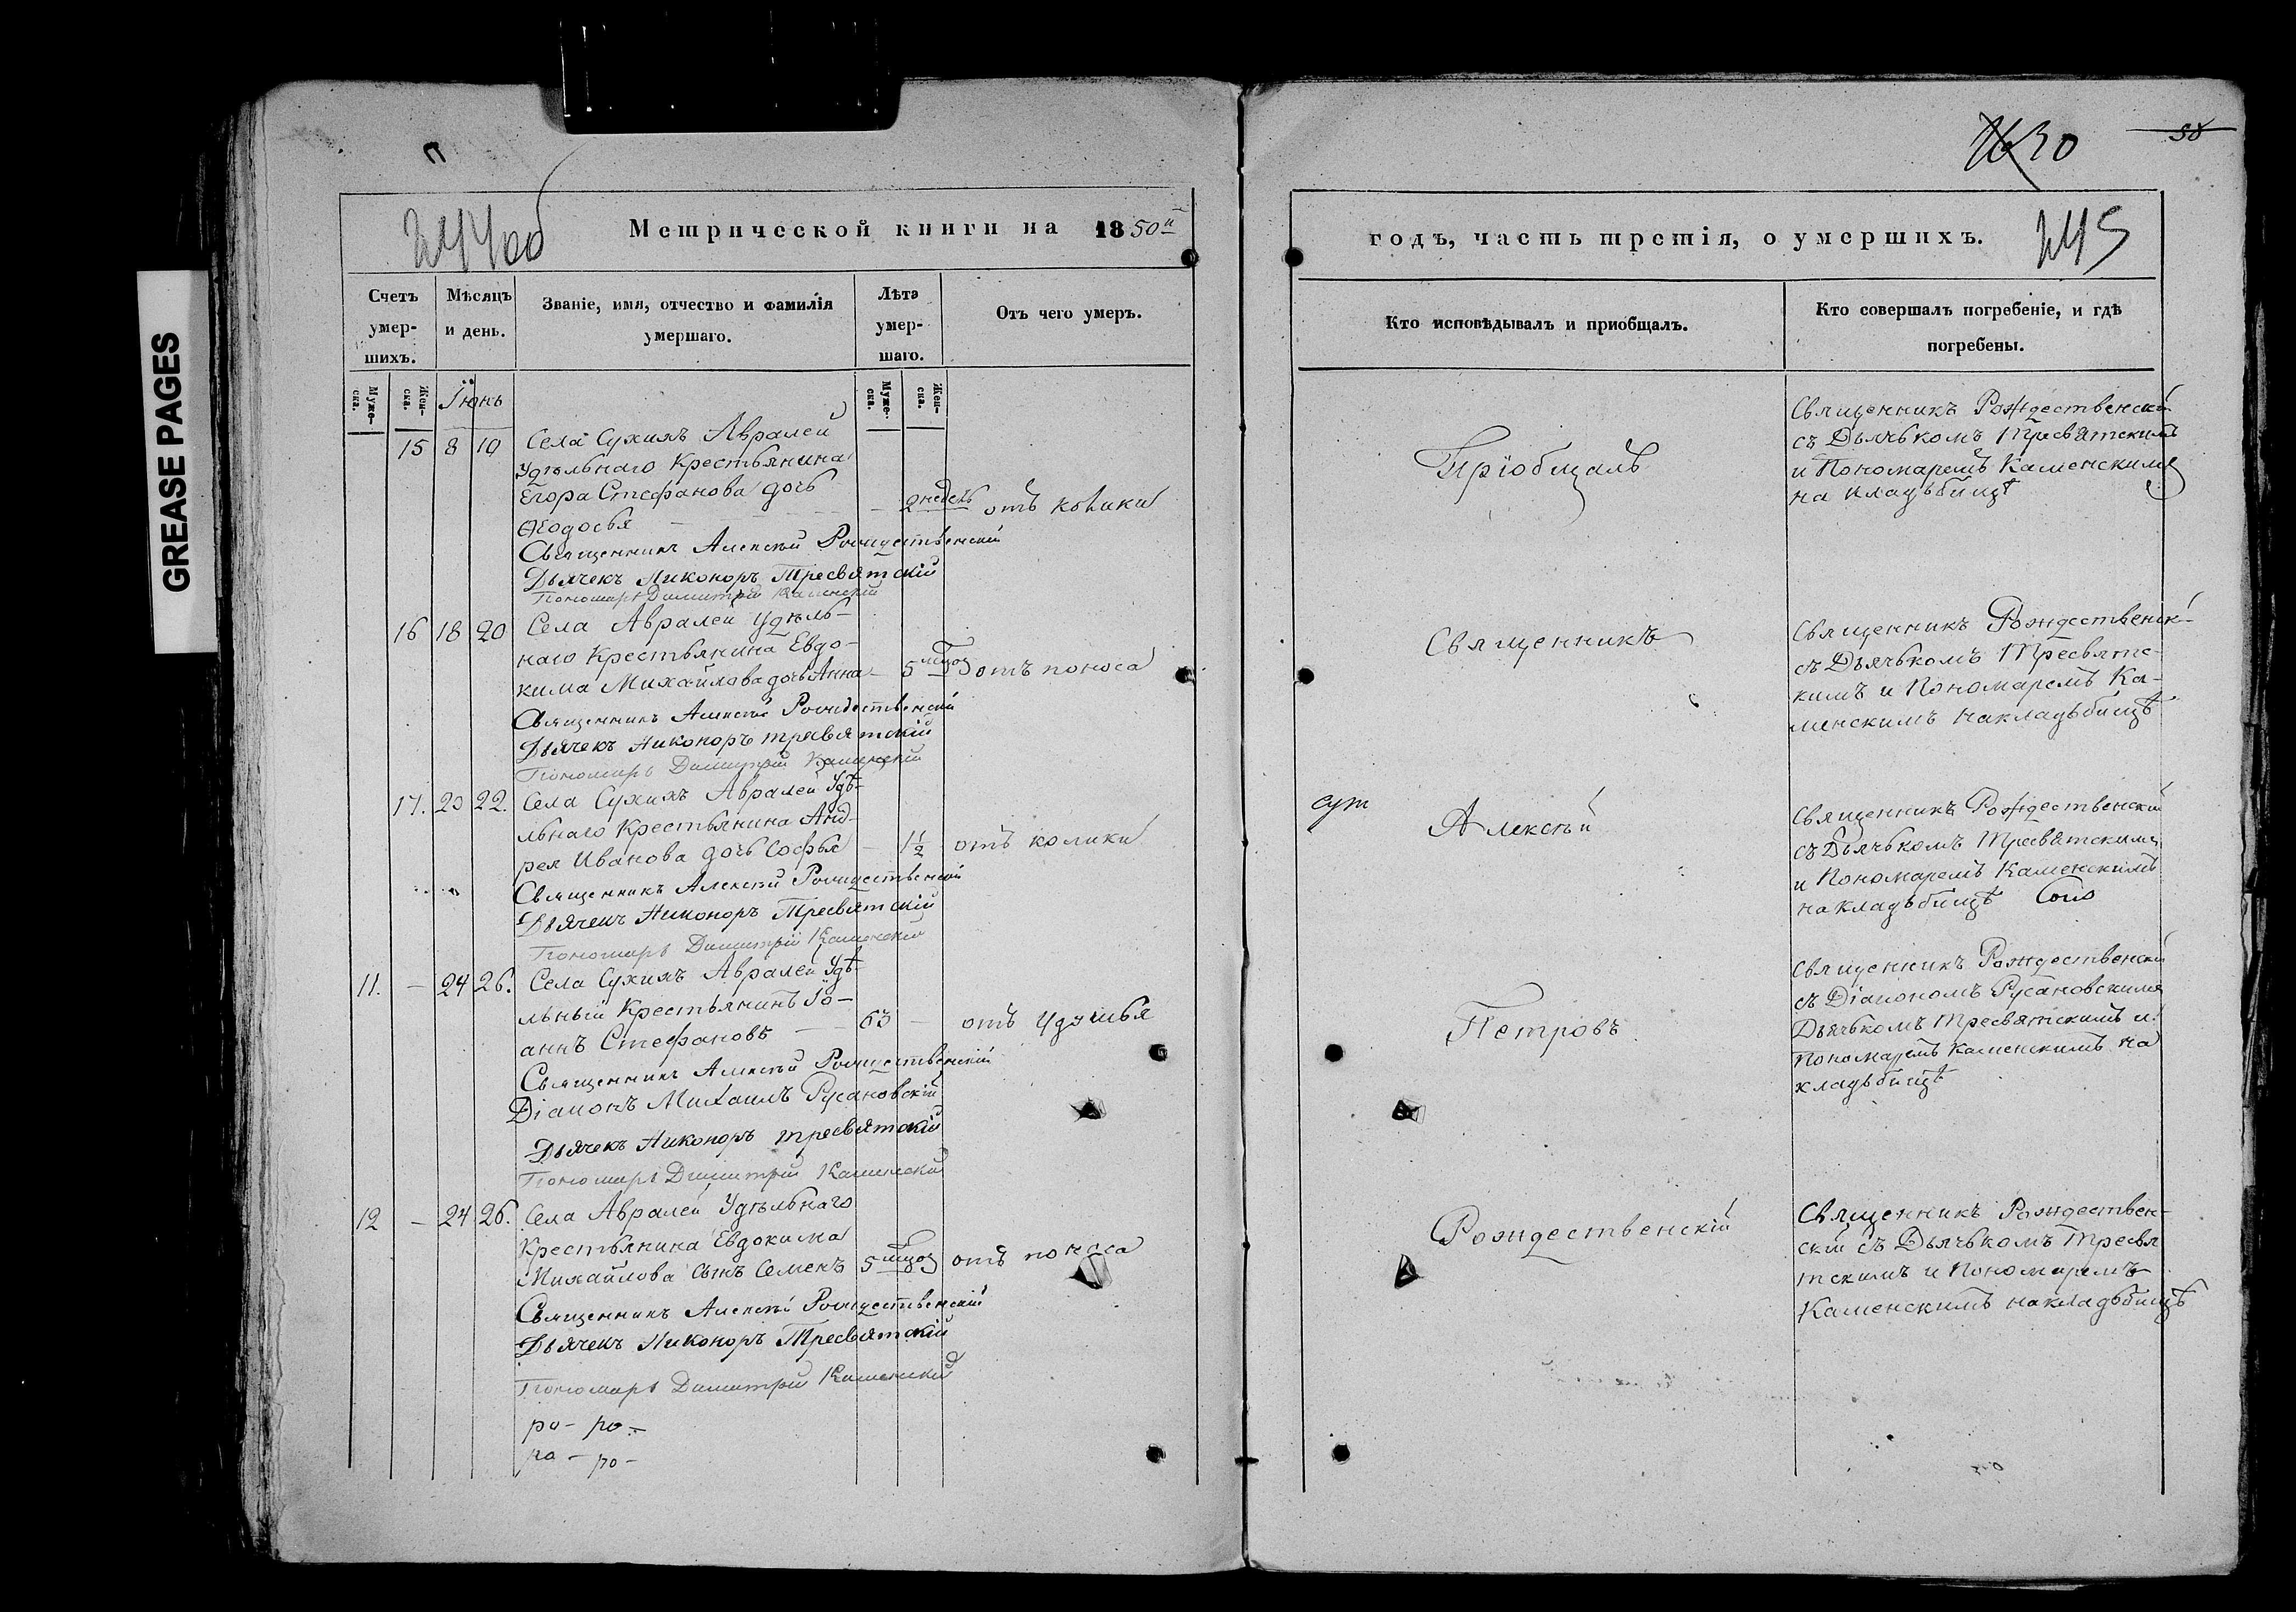 GREASE PAGES
244об
Метрической книги на 1850й
Счетъ умер-шихъ.
Мѣсяцъ и день.
Званіе, имя, отчество и фамилія умершаго.
Лѣта умер-шаго.
Отъ чего умеръ.
Муже-ска.
Жен-ска.
Іюнь
Муже-ска.
Жен-ска.
15 8 10 Села Сухихъ Авралей
Удѣльнаго Крестьянина
Егора Стефанова дочь
Ѳеодосья — 2 недѣль отъ колики
Священникъ Алексѣй Рождественскій
Дьячекъ Никоноръ Тресвятскій
Пономарь Димитрій Каменскій
16 18 20 Села Авралей Удѣль-
наго Крестьянина Евдо-
кима Михайлова дочь Анна — 5 мцоъ отъ поноса
Священникъ Алексѣй Рождественскій
Дьячекъ Никоноръ Тресвятскій
Пономарь Димитрій Каменскій
17. 20 22. Села Сухихъ Авралей Удѣ-
льнаго Крестьянина Анд-
рея Иванова дочь Софья — 1 1/2 отъ колики
Священникъ Алексѣй Рождественскій
Дьячекъ Никоноръ Тресвятскій
Пономарь Димитрій Каменскій
11. — 24 26. Села Сухихъ Авралей Удѣ-
льный Крестьянинъ Іо-
аннъ Стефановъ — 63 — отъ удушья
Священникъ Алексѣй Рождественскій
Діаконъ Михаилъ Русановскій
Дьячекъ Никоноръ Тресвятскій
Пономарь Димитрій Каменскій
12 — 24 26. Села Авралей Удѣльнаго
Крестьянина Евдокима
Михайлова сынъ Семенъ 5 мцоъ отъ поноса
Священникъ Алексѣй Рождественскій
Дьячекъ Никоноръ Тресвятскій
Пономарь Димитрій Каменскій
ро- ро-
ро- ро-
30
годъ, часть третія, о умершихъ.
245
Кто исповѣдывалъ и приобщалъ.
Кто совершалъ погребеніе, и гдѣ погребены.
Пріобщалъ
Священникъ
Алексѣй
Петровъ
Рождественскій
Священникъ Рождественскій
съ Дьячькомъ Тресвятскимъ
и Пономаремъ Каменскимъ
на кладьбищѣ
Священникъ Рождественск-
съ Дьячькомъ Тресвятс-
кимъ и Пономаремъ Ка-
менскимъ на кладьбищѣ
Священникъ Рождественскій
съ Дьячькомъ Тресвятскимъ
и Пономаремъ Каменскимъ
на кладьбищѣ
Священникъ Рождественскій
съ Діакономъ Русановскимъ
Дьячькомъ Тресвятскимъ и
Пономаремъ Каменскимъ на
кладьбищѣ
Священникъ Рождествен-
скій съ Дьячькомъ Тресвя
тскимъ и Пономаремъ
Каменскимъ на кладьбищѣ